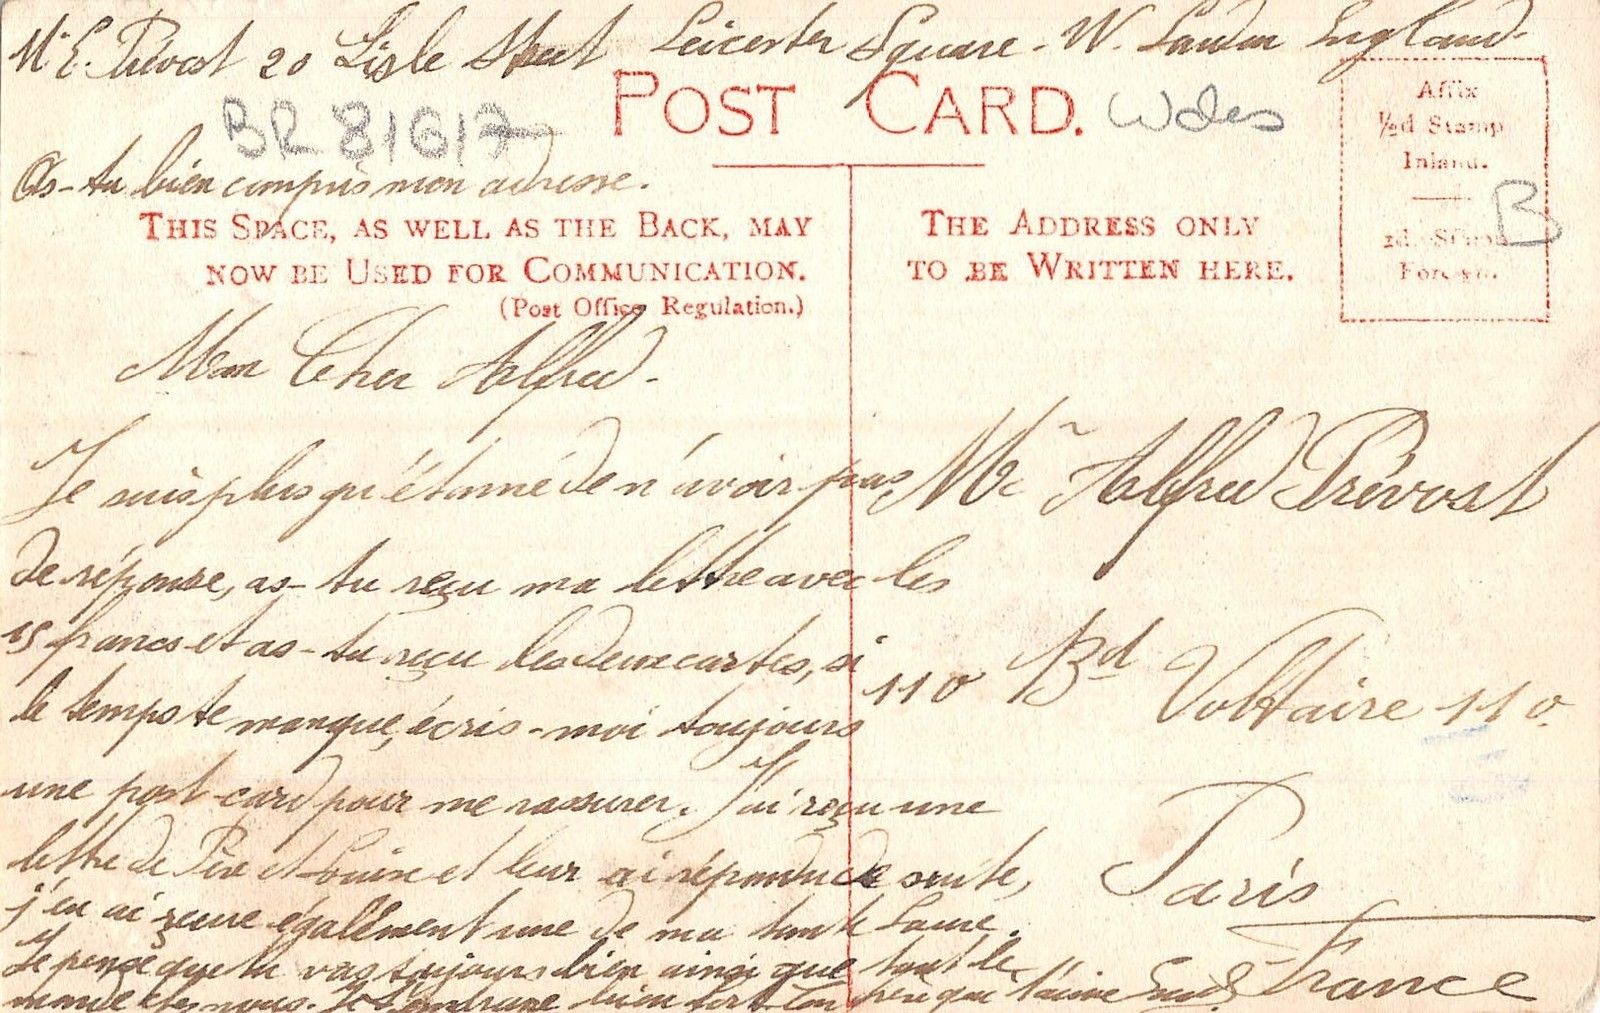 Mr E. Prévost 20 Lisle Street Leicester Square - W. London England.
BR 81617
Wales
As-tu bien compris mon adresse.
POST CARD.
Affix
½d Stamp
Inland.
1d. Stamp
Foreign.
B
THIS SPACE, AS WELL AS THE BACK, MAY
NOW BE USED FOR COMMUNICATION.
(Post Office Regulation.)
THE ADDRESS ONLY
TO BE WRITTEN HERE.
Mon Cher Alfred.
Je suis plus qu'étonné de n'avoir pas
de réponse, as-tu reçu ma lettre avec les
15 francs et as-tu reçu les deux cartes, si
le temps te manque, écris-moi toujours
une post-card pour me rassurer. J'ai reçu une
lettre de Père et Louise et leur ai répondu de suite,
j'en ai reçue également une de ma tante Laure.
Je pense que tu vas toujours bien ainsi que tout le
monde chez nous. Je t'embrasse bien fort Ton frère qui t'aime
Mr Alfred Prévost
110 Bd Voltaire 110.
Paris
France